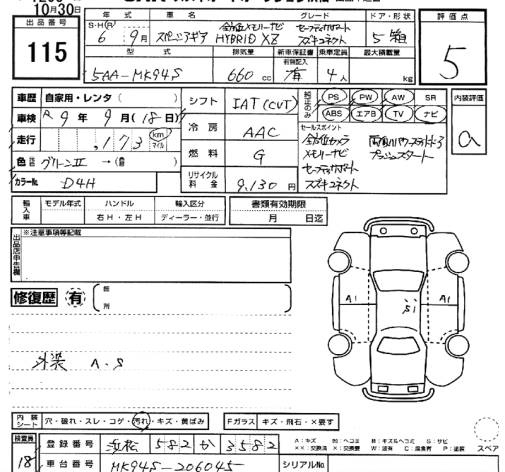 10月30日
出品番号
115
年式 車名 グレード ドア・形状
S・H(R) 6年 9月 スペーシアギア HYBRID XZ 全方位メモリーナビ セーフティサポート スズキコネクト 5 箱
型式 排気量 新車保証書 乗車定員 最大積載量
5AA-MK94S 660cc 有効記入 有 4人 kg
評価点
5
車歴 自家用・レンタ( )
車検 R 9年 9月(18日)
走行 173 km マイル
色 グリーンII →(自 )
カラーNo. D4H
シフト IAT(CVT)
冷房 AAC
燃料 G
リサイクル料金 9,130円
PS PW AW SR
ABS エアB TV ナビ
セールスポイント
全方位カメラ
メモリーナビ
セーフティサポート
スズキコネクト
プッシュスタート
内装評価
a
輸入車 モデル年式 ハンドル 右H・左H 輸入区分 ディーラー・並行
書類有効期限
月 日迄
出品店申告欄
※注意事項等記載
修復歴 有 箇所
外装 A.S
A1 S1 A1
内装シート 穴・破れ・スレ・コゲ・汚れ・キズ・黄ばみ
Fガラス キズ・飛石・×要す
検査員
18
登録番号 浜松 582 か 3582
車台番号 MK94S-206045
シリアルNo.
A:キズ U:ヘコミ B:キズ&ヘコミ S:サビ
××:交換済 X:要交換 W:波有 C:腐食有 P:塗装
スペア